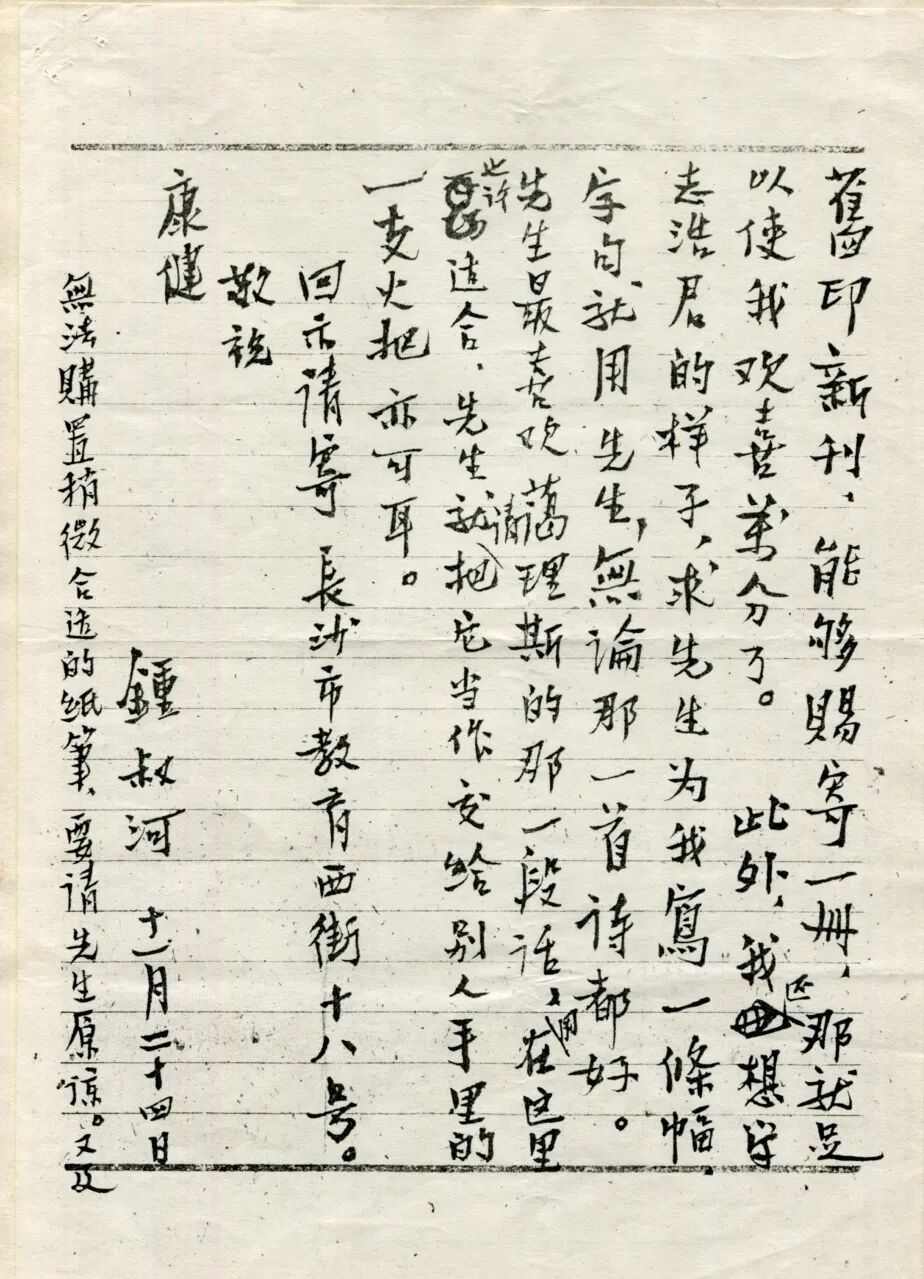 舊印新刊、能够賜寄一册，那就足
以使我欢喜萬分了。 此外，我还想学
志浩君的样子，求先生为我寫一條幅，
字句就用先生，無論那一首诗都好。
先生最喜欢藹理斯的那一段话，用在这里
也许适合，先生就请把它当作交给别人手里的
一支火把亦可耳。
回示请寄 長沙市教育西街十八号。
敬祝
康健
鍾叔河 十一月二十四日
無法購置稍微合适的纸筆，要请先生原谅。又及